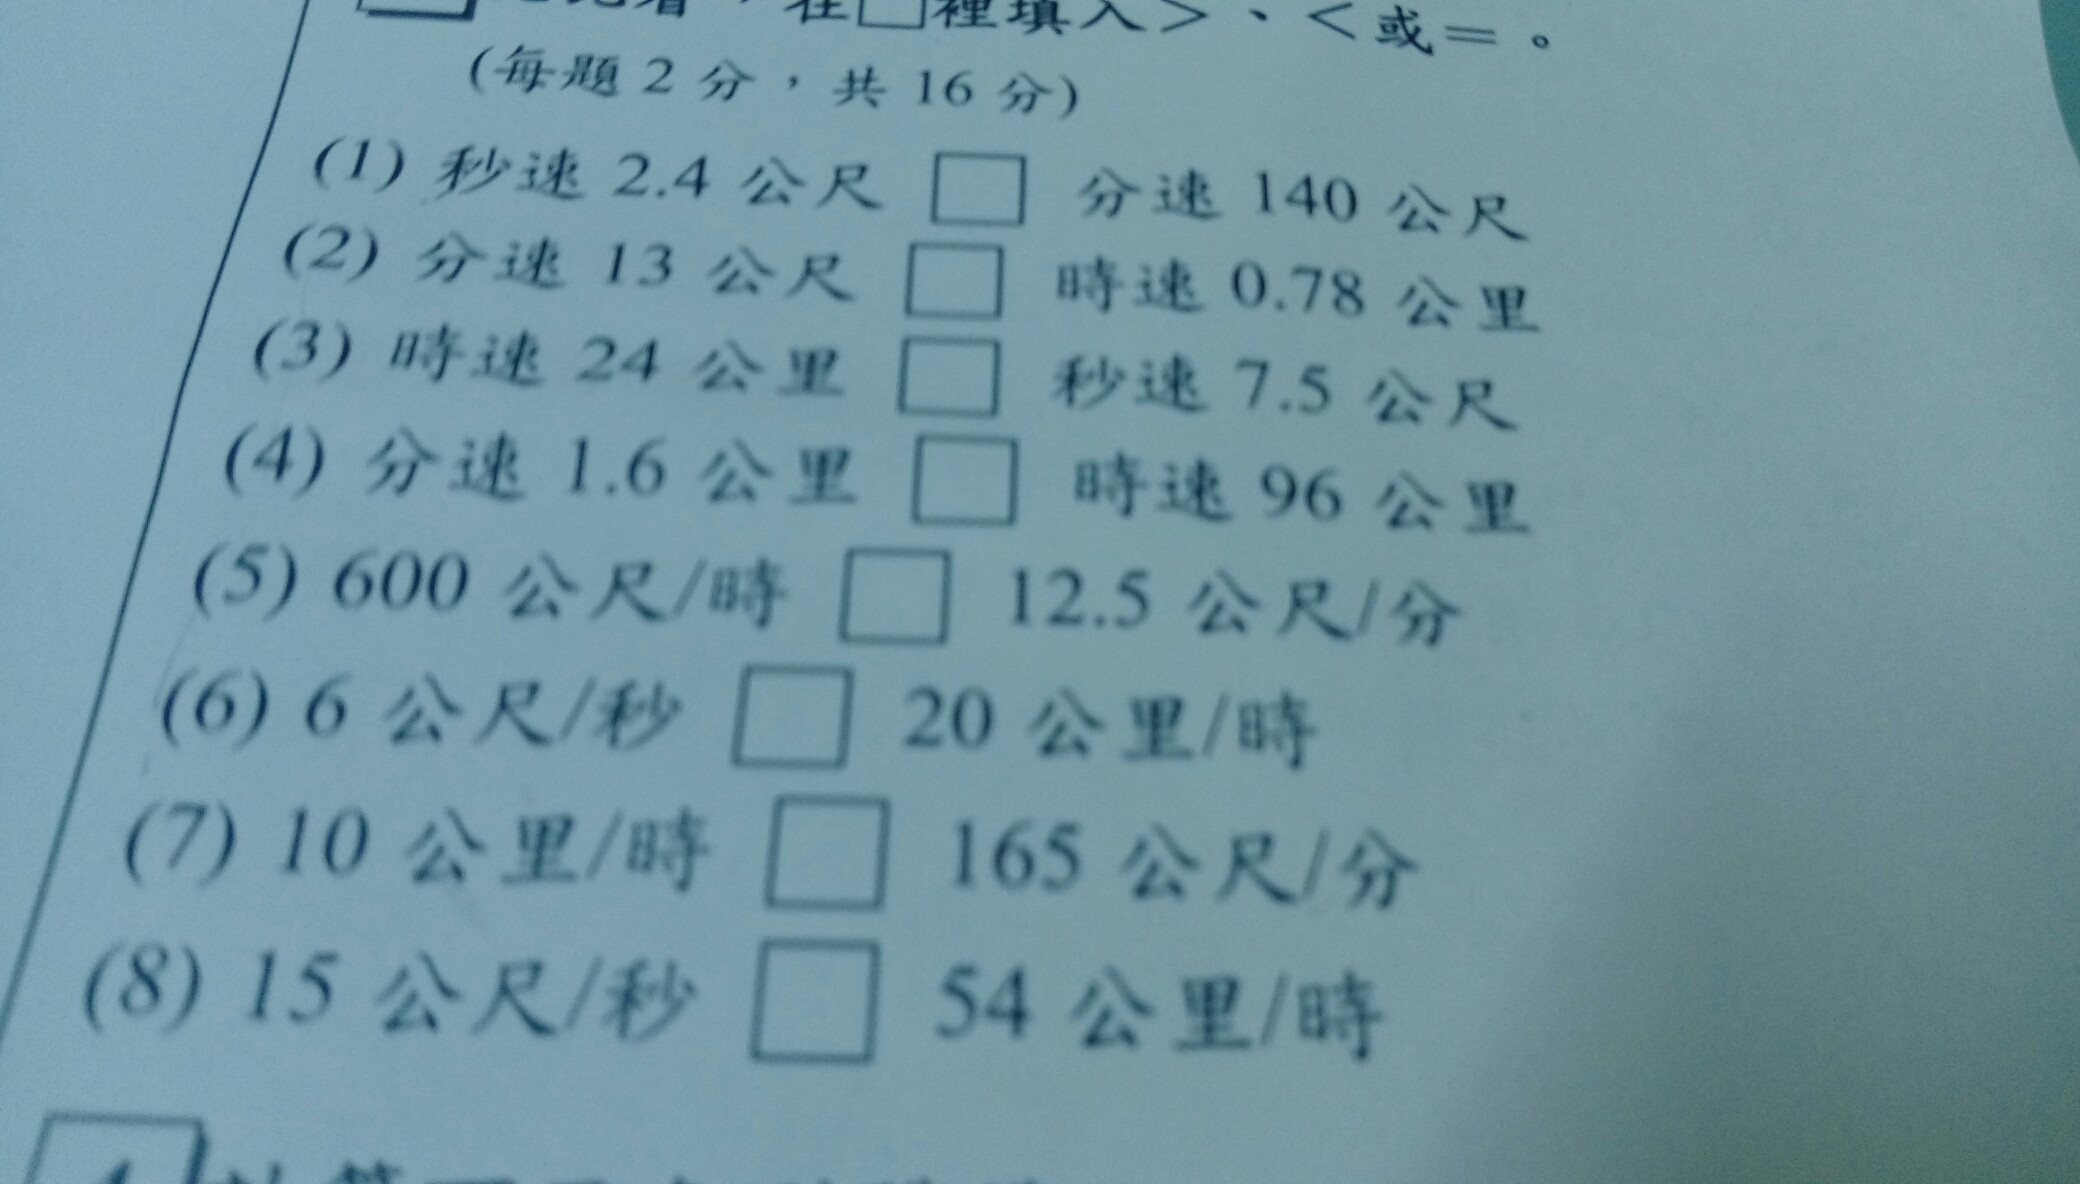 在□裡填入>、<或=。
(每題 2 分，共 16 分)
(1) 秒速 2.4 公尺 □ 分速 140 公尺
(2) 分速 13 公尺 □ 時速 0.78 公里
(3) 時速 24 公里 □ 秒速 7.5 公尺
(4) 分速 1.6 公里 □ 時速 96 公里
(5) 600 公尺/時 □ 12.5 公尺/分
(6) 6 公尺/秒 □ 20 公里/時
(7) 10 公里/時 □ 165 公尺/分
(8) 15 公尺/秒 □ 54 公里/時